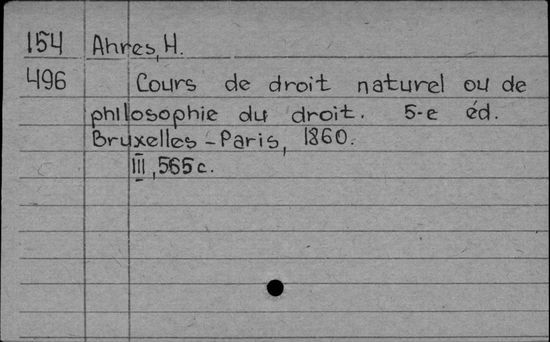 154 Ahres, H.
496 Cours de droit naturel ou de
philosophie du droit. 5-e éd.
Bruxelles-Paris, 1860.
III, 565 c.